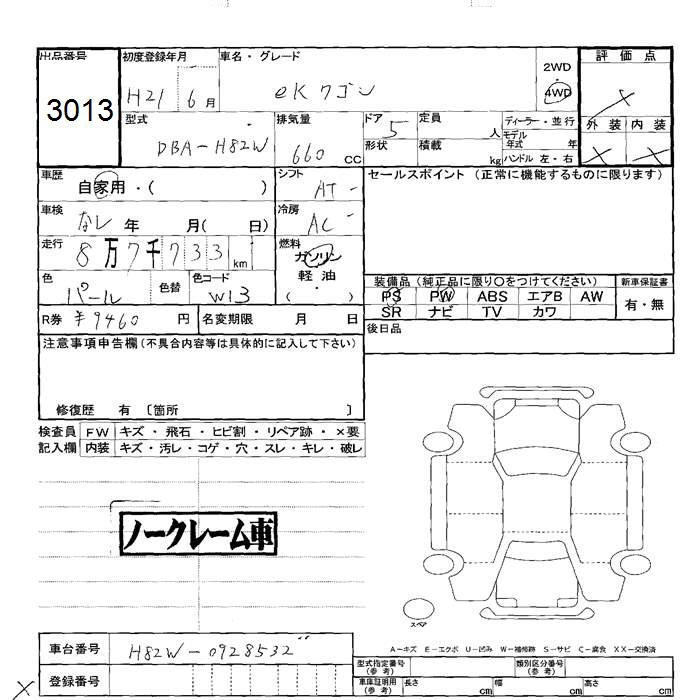 出品番号 初度登録年月 車名・グレード 2WD・4WD 評価点
3013 H21 6月 eKワゴン
型式 排気量 ドア 定員 ディーラー・並行 外装 内装
DBA-H82W 660 CC 5 人 モデル年式 年
形状 積載 kg ハンドル 左・右
車歴 シフト セールスポイント (正常に機能するものに限ります)
自家用・( ) AT
車検 冷房
なし 年 月( 日) AC
走行 燃料
8万7千733km ガソリン・軽油( )
色 色替 色コード
パール W13
装備品 (純正品に限り○をつけてください) 新車保証書
PS PW ABS エアB AW 有・無
SR ナビ TV カワ
R券 ¥9460 円 名変期限 月 日 後日品
注意事項申告欄(不具合内容等は具体的に記入して下さい)
修復歴 有 〔箇所 〕
検査員 FW キズ・飛石・ヒビ割・リペア跡・×要
記入欄 内装 キズ・汚レ・コゲ・穴・スレ・キレ・破レ
ノークレーム車
スペア
A-キズ E-エクボ U-凹み W-補修跡 S-サビ C-腐食 XX-交換済
車台番号 H82W-0928532
型式指定番号(参考) 類別区分番号(参考)
登録番号 車庫証明用(参考) 長さ cm 幅 cm 高さ cm